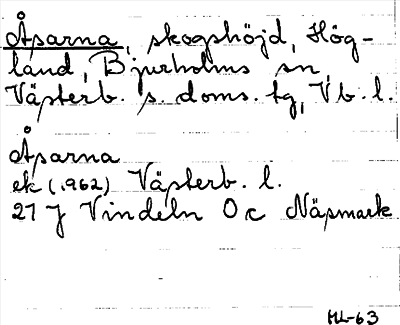 Åsarna, skogshöjd, Hög-
land, Bjurholms sn,
Västerb. s. doms. tg, Vb. l.
Åsarna
ek (1962) Västerb. l.
21 J Vindeln 0 c Näsmark
ML-63